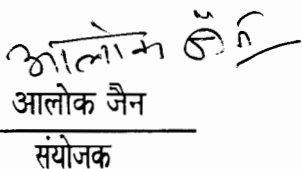 आलोक जैन
आलोक जैन
संयोजक